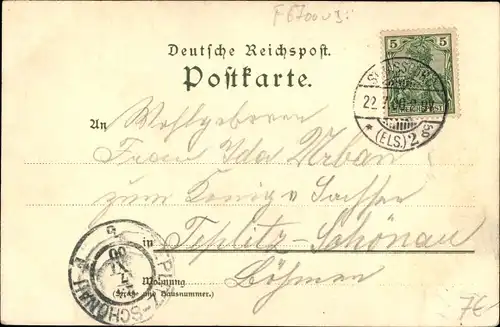 F6700 u 3:
Deutsche Reichspost.
Postkarte.
5 5
STRASSBURG
22.
(ELS.) 2
An
Wohlgeboren
Frau Ida Urban
zum König v Sachsen
in Teplitz-Schönau
Böhmen
Wohnung
(Straße und Hausnummer.)
TEPLITZ-SCHÖNAU
7€